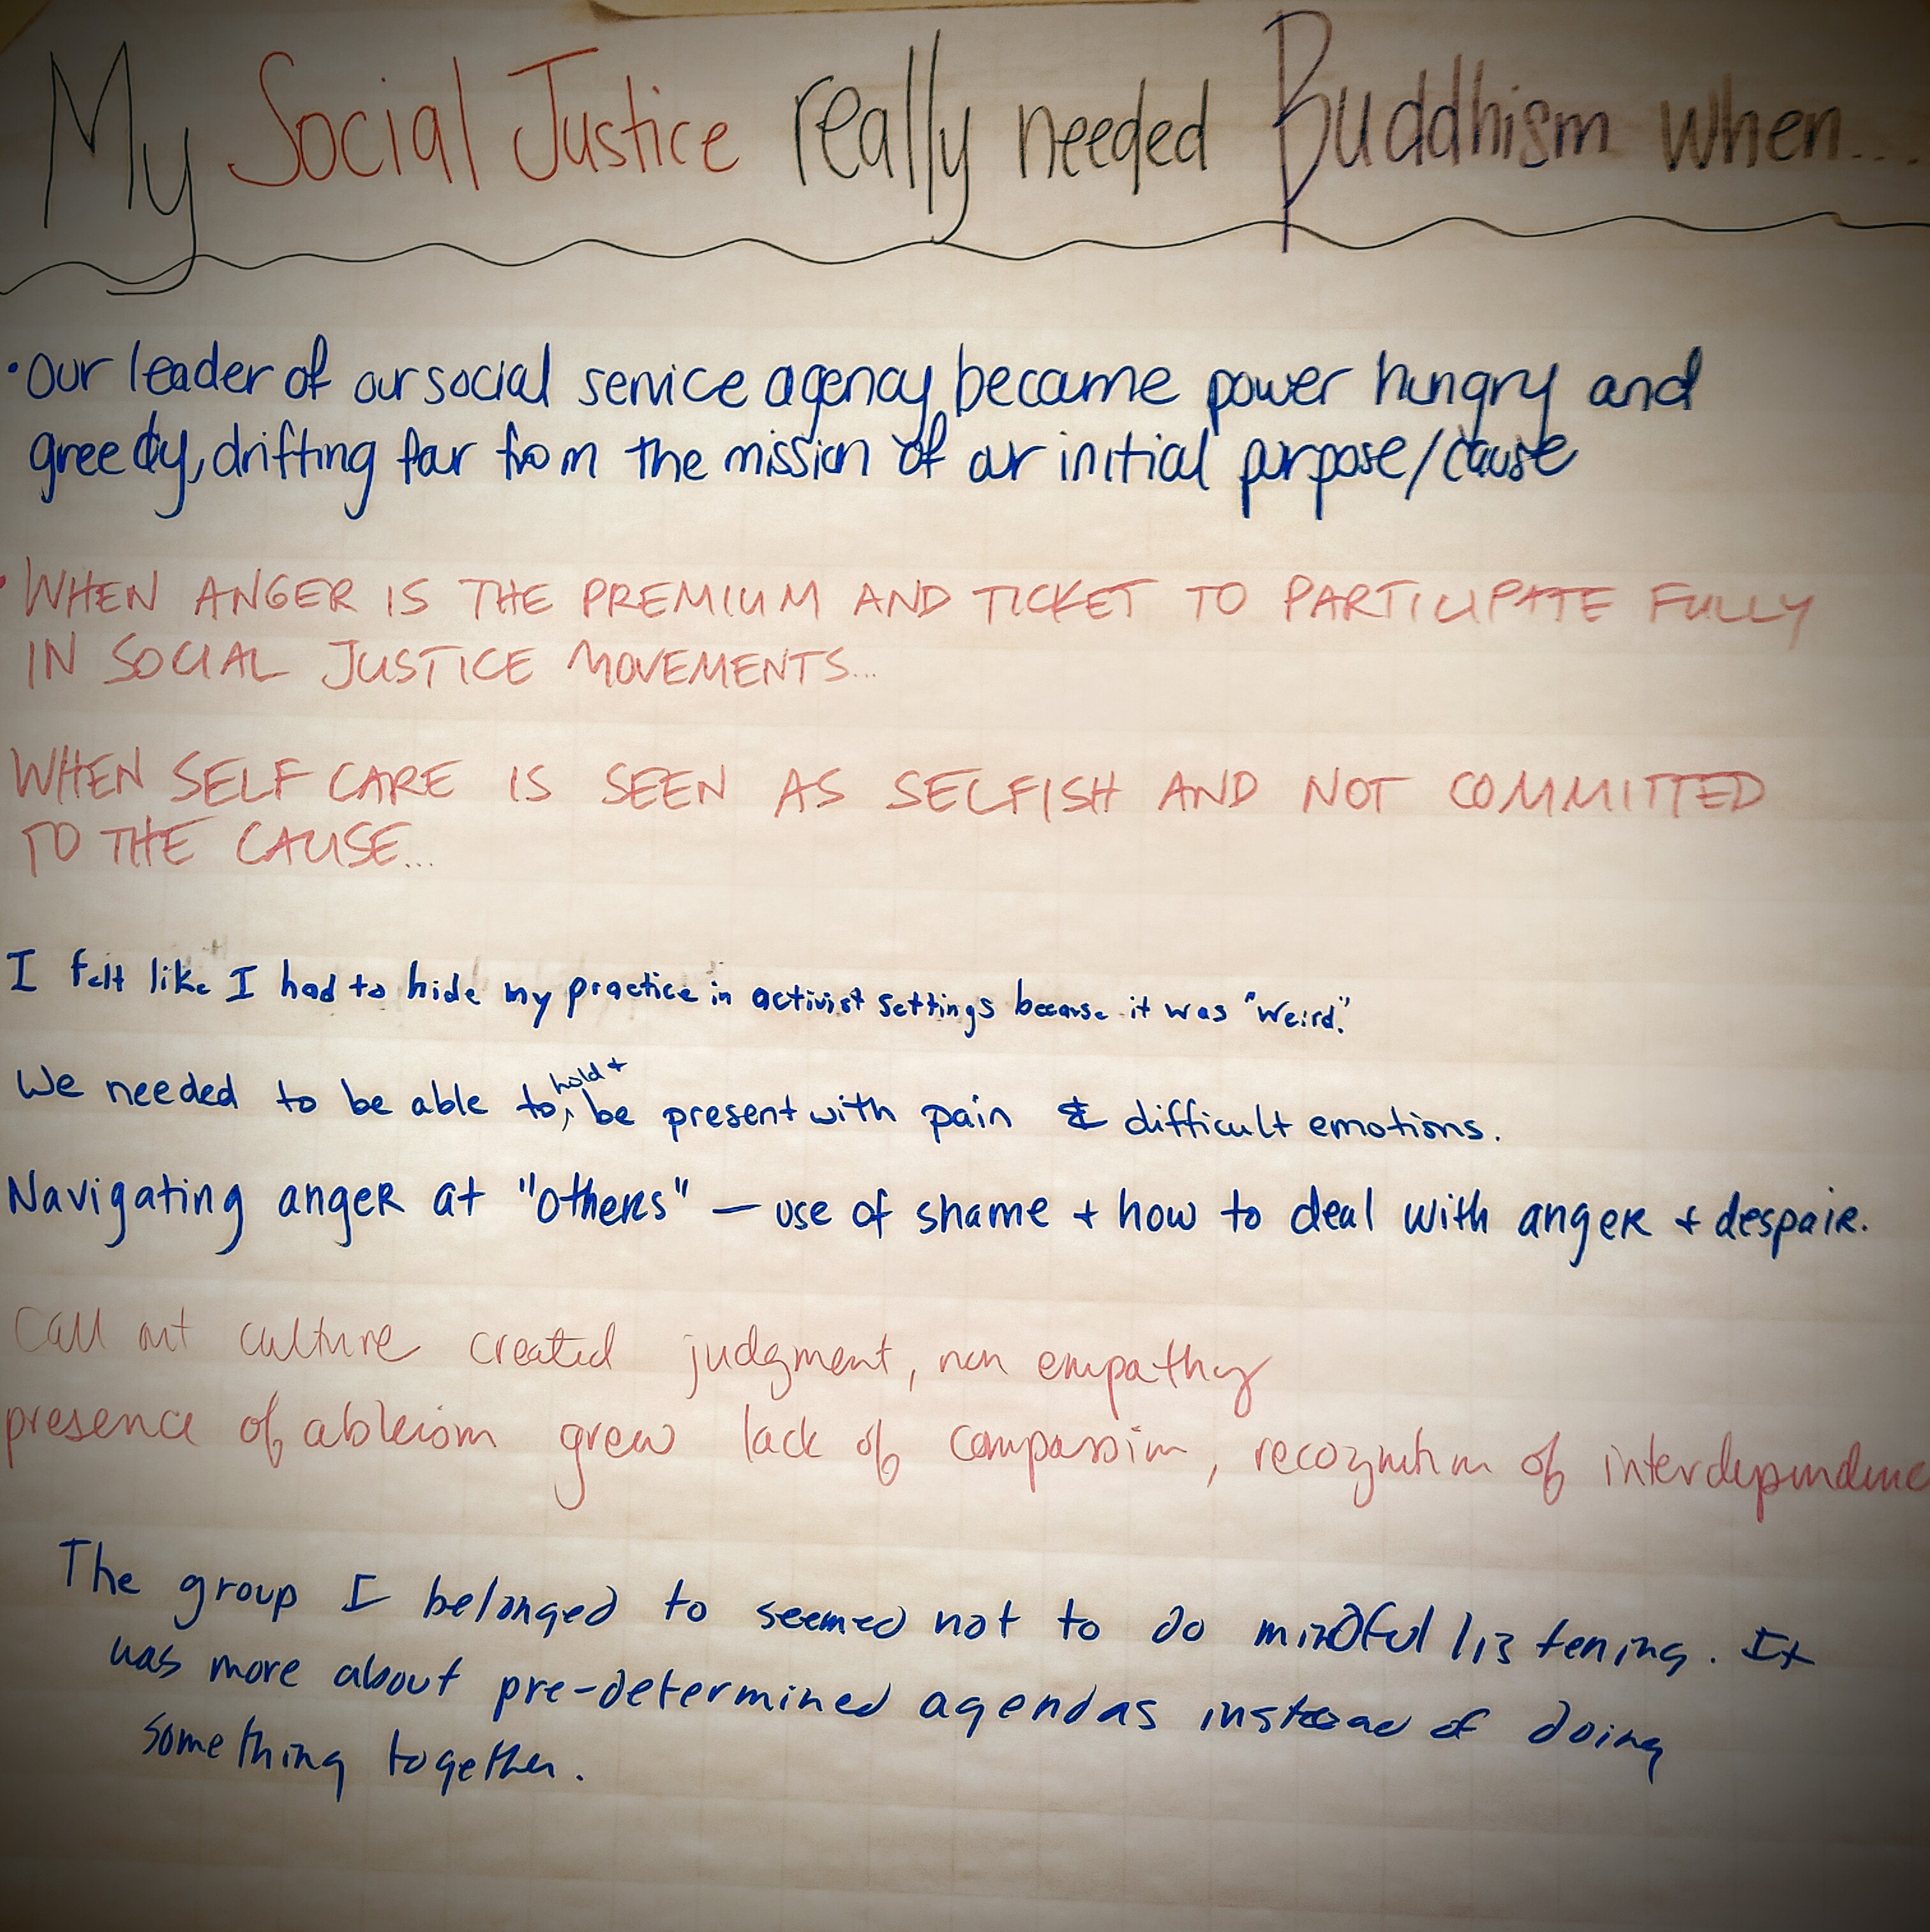 My Social Justice really needed Buddhism when...
• Our leader of our social service agency became power hungry and
greedy, drifting far from the mission of our initial purpose/cause
• WHEN ANGER IS THE PREMIUM AND TICKET TO PARTICIPATE FULLY
IN SOCIAL JUSTICE MOVEMENTS...
WHEN SELF CARE IS SEEN AS SELFISH AND NOT COMMITTED
TO THE CAUSE...
I felt like I had to hide my practice in activist settings because it was "weird."
We needed to be able to, hold + be present with pain & difficult emotions.
Navigating anger at "others" — use of shame + how to deal with anger + despair.
Call out culture created judgment, non empathy
presence of ableism grew lack of compassion, recognition of interdependenc
The group I belonged to seemed not to do mindful listening. It
was more about pre-determined agendas instead of doing
something together.